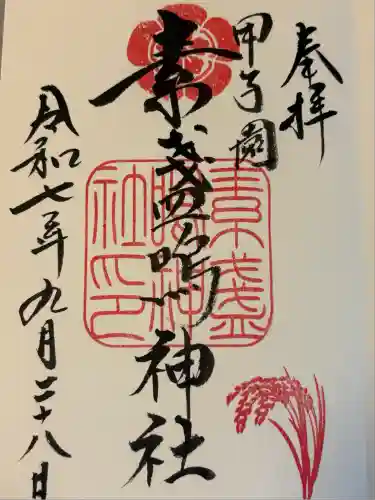 奉拝
甲子園
素盞嗚神社
素盞
嗚神
社印
令和七年九月二十八日